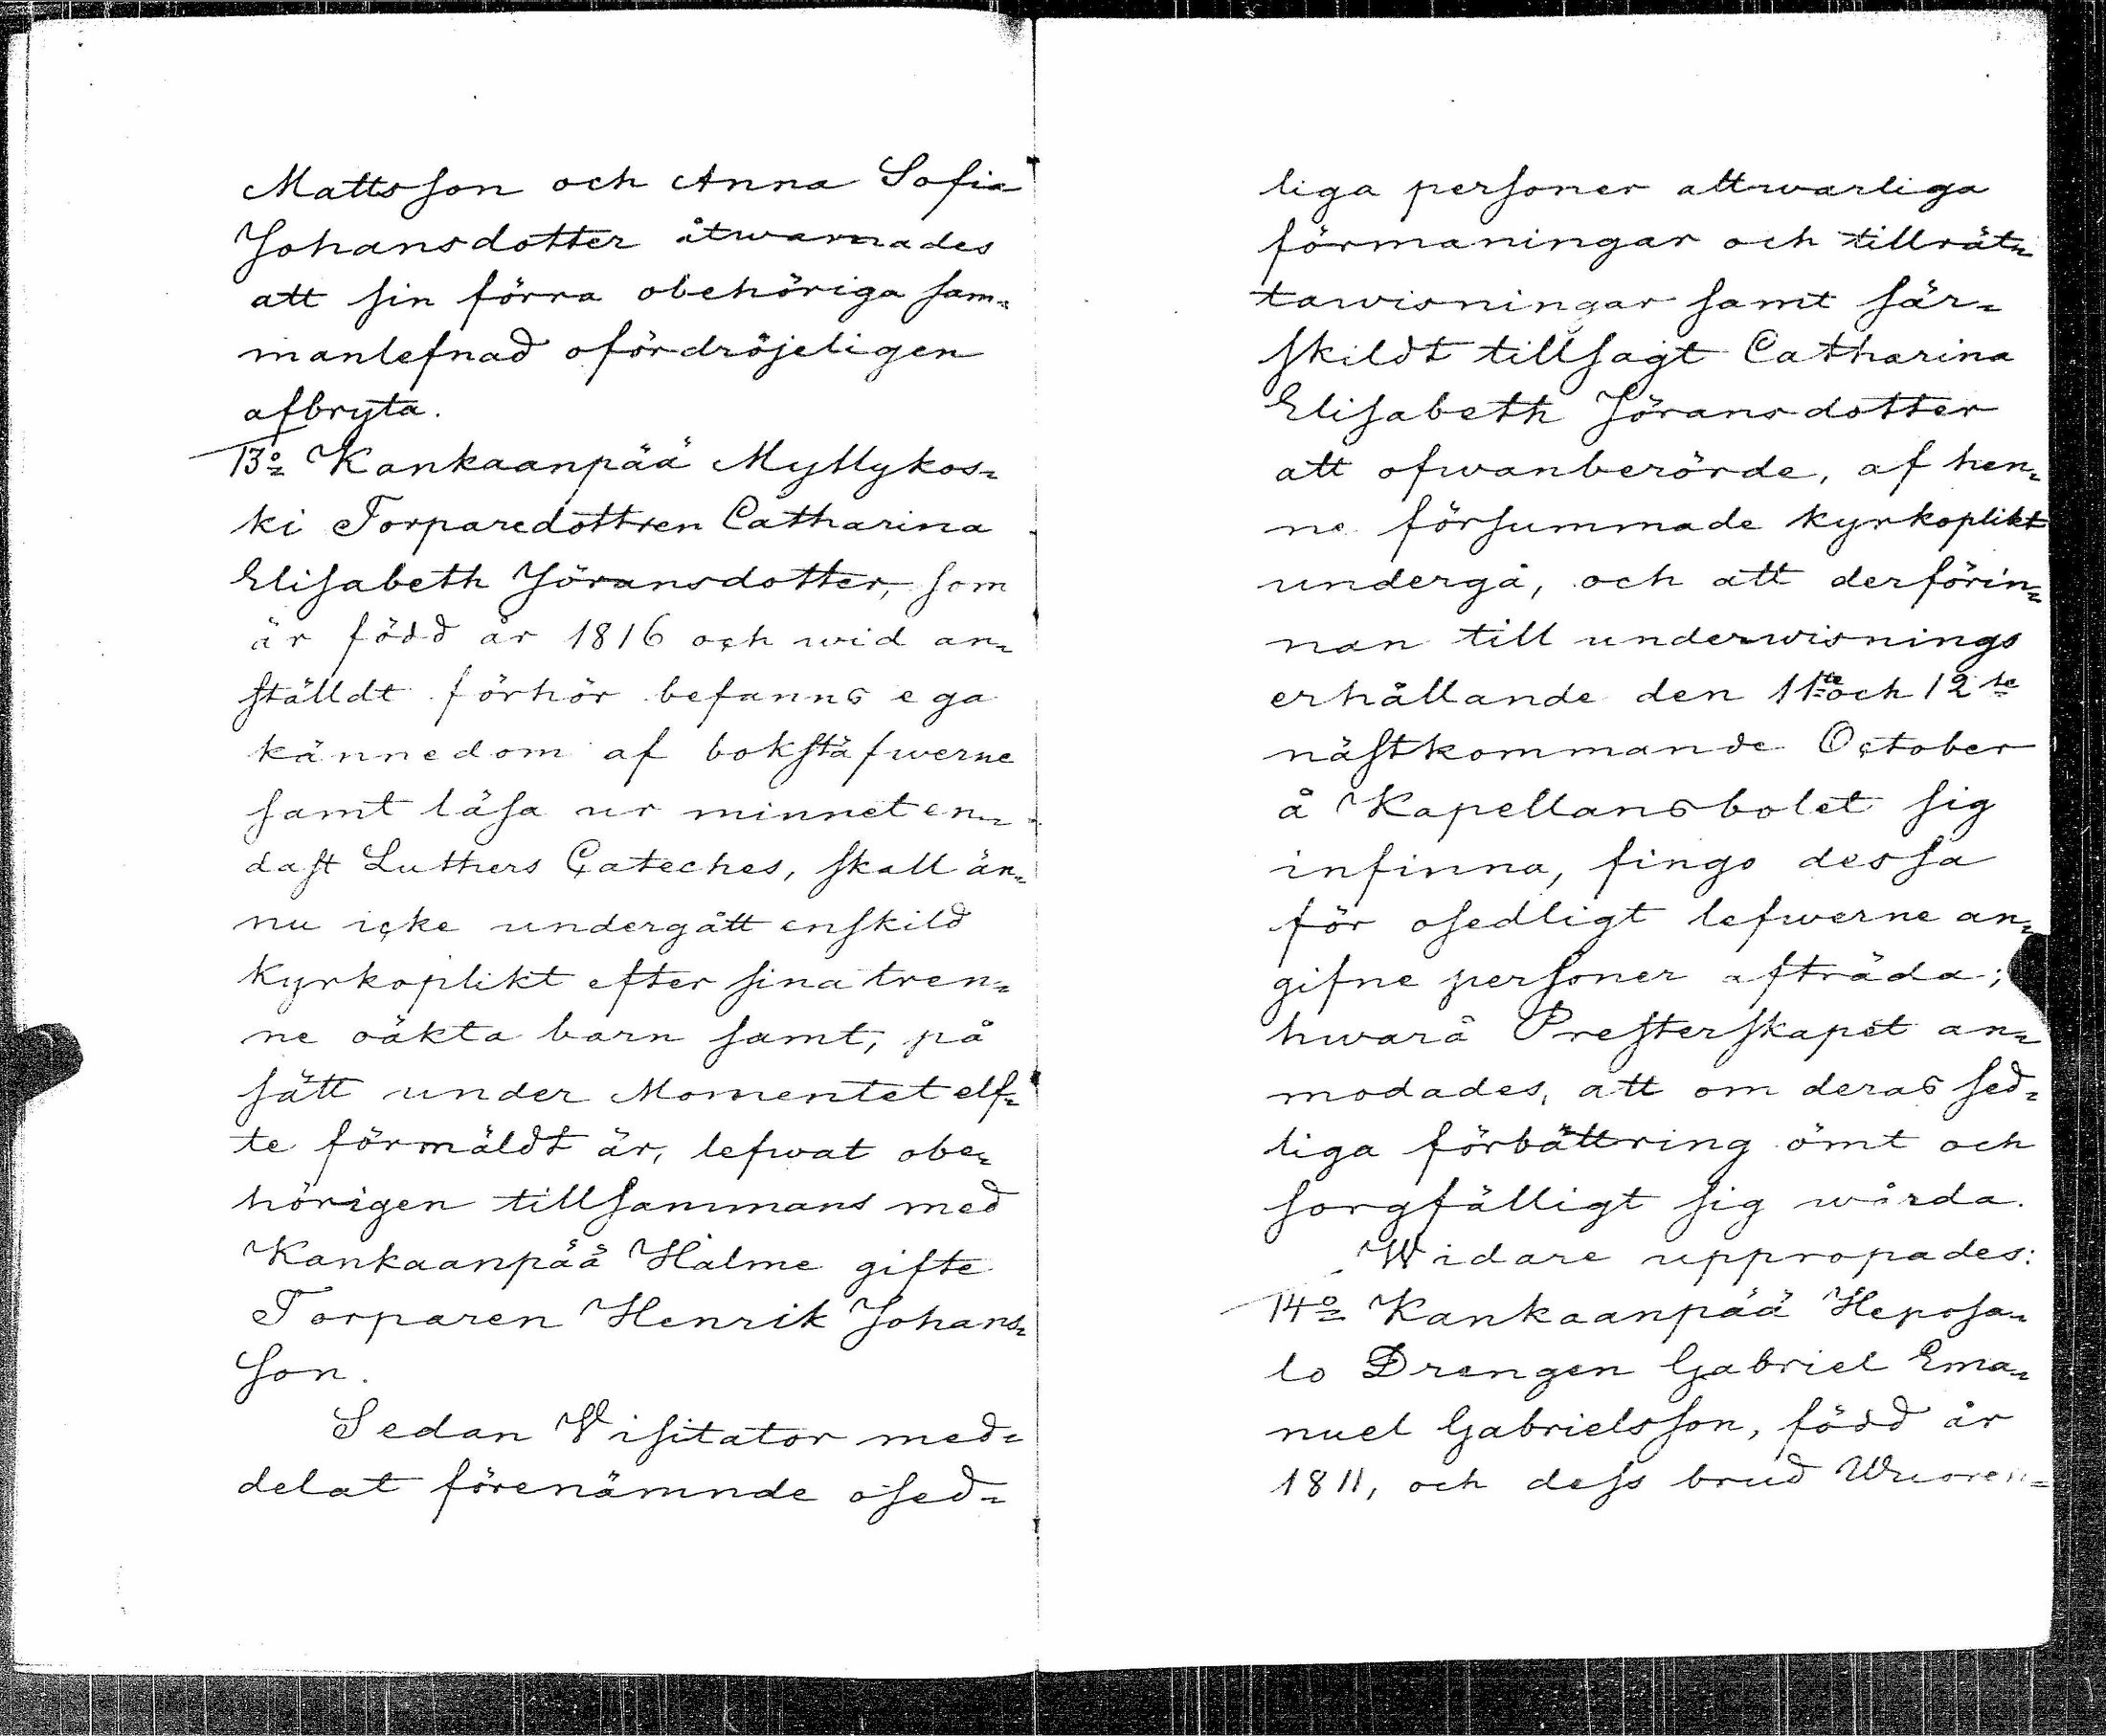 Mattsson och Anna Sofia
Johansdotter åtwarnades
att sin förra obehöriga sam=
manlefnad ofördröjeligen
afbryta.
13o= Kankaanpää Myllykos=
ki Torparedottren Catharina
Elisabeth Jöransdotter, som
är född år 1816 och wid an=
ställdt förhör befanns ega
kännedom af bokstäfwerne
samt läsa ur minnet en=
dast Luthers Cateches, skall än=
nu icke undergått enskild
Kyrkoplikt efter sina tren=
ne oäkta barn samt, på
sätt under Momentet elf=
te förmäldt är, lefwat obe=
hörigen tillsammans med
Kankaanpää Halme gifte
Torparen Henrik Johans=
son.
Sedan Visitator med=
delat förenämnde osed=
liga personer allwarliga
förmaningar och tillrät=
tawisningar samt sär=
skildt tillsagt Catharina
Elisabeth Jöransdotter
att ofwanberörde, af hen=
ne försummade kyrkoplikt
undergå, och att derförin=
nan till underwisnings
erhållande den 11te och 12te
nästkommande October
å Kapellansbolet sig
infinna, fingo dessa
för osedligt lefwerne an=
gifne personer afträda;
hwarå Presterskapet an=
modades, att om deras sed=
liga förbättring ömt och
sorgfälligt sig wårda.
Widare uppropades:
14o= Kankaanpää Heposa=
lo Drengen Gabriel Ema=
nuel Gabrielsson, född år
1811, och dess brud Wuoren=